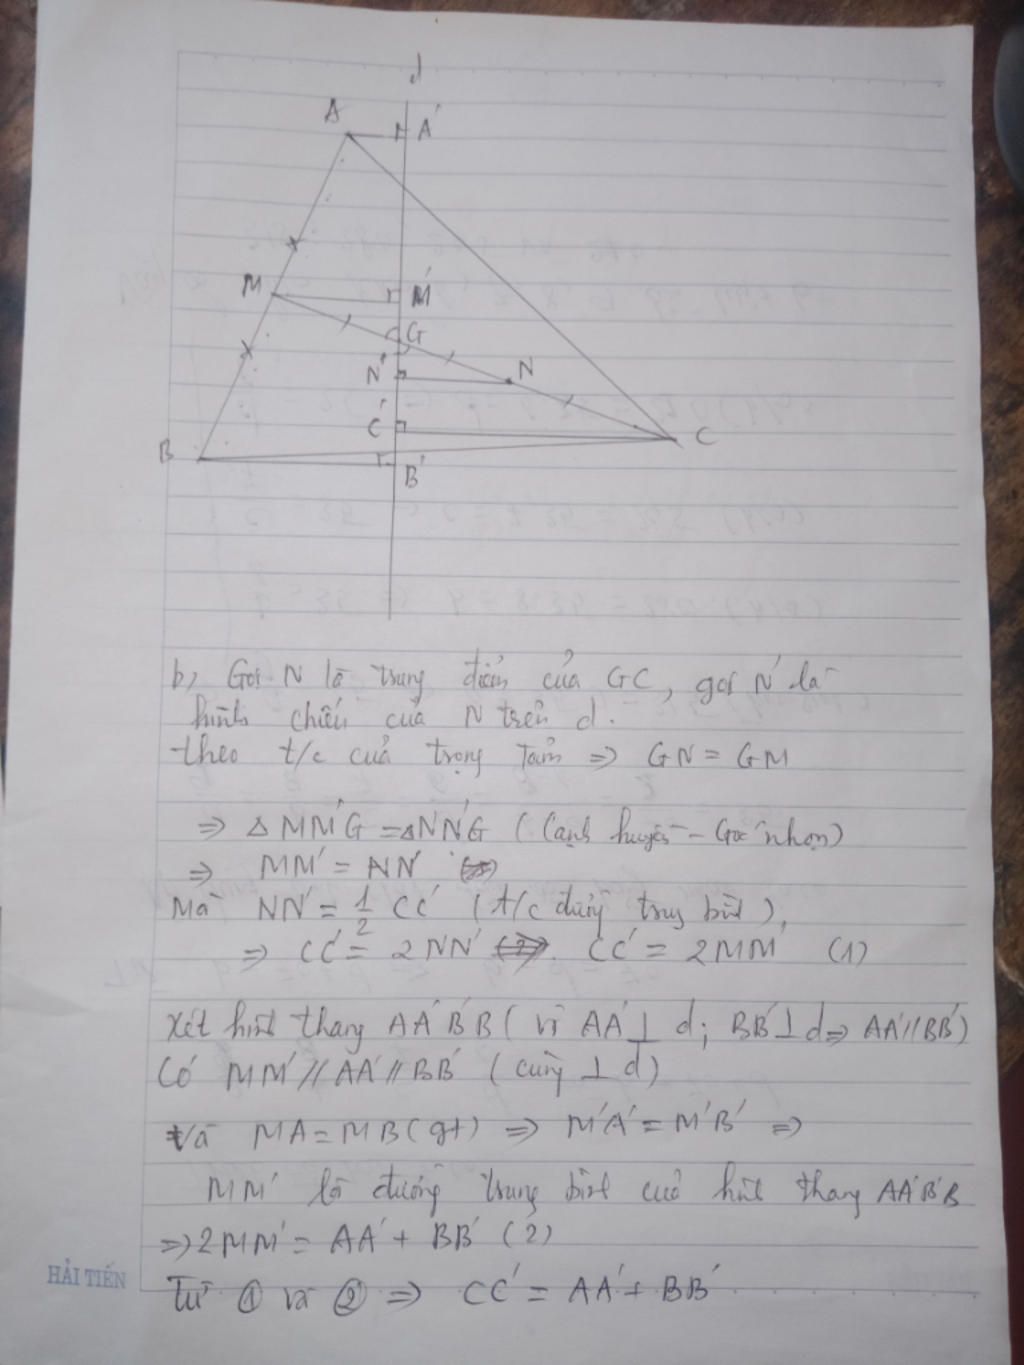 d
A
A'
M
M'
G
N'
N
C'
C
B
B'
b, Gọi N là trung điểm của GC, gọi N' là
hình chiếu của N trên d.
theo t/c của trọng tâm => GN = GM
=> Δ MM'G = ΔNN'G (Cạnh huyền - Góc nhọn)
=> MM' = NN'
Mà NN' = 1/2 CC' (t/c đường trung bình),
=> CC' = 2NN' CC' = 2MM' (1)
Xét hình thang AA'B'B (vì AA'⊥ d; BB'⊥d=> AA'//BB')
Có MM'//AA'//BB' (cùng ⊥ d)
và MA = MB (gt) => M'A' = M'B' =>
MM' là đường trung bình của hình thang AA'B'B
=> 2MM' = AA' + BB' (2)
HẢI TIẾN
Từ ① và ② => CC' = AA' + BB'